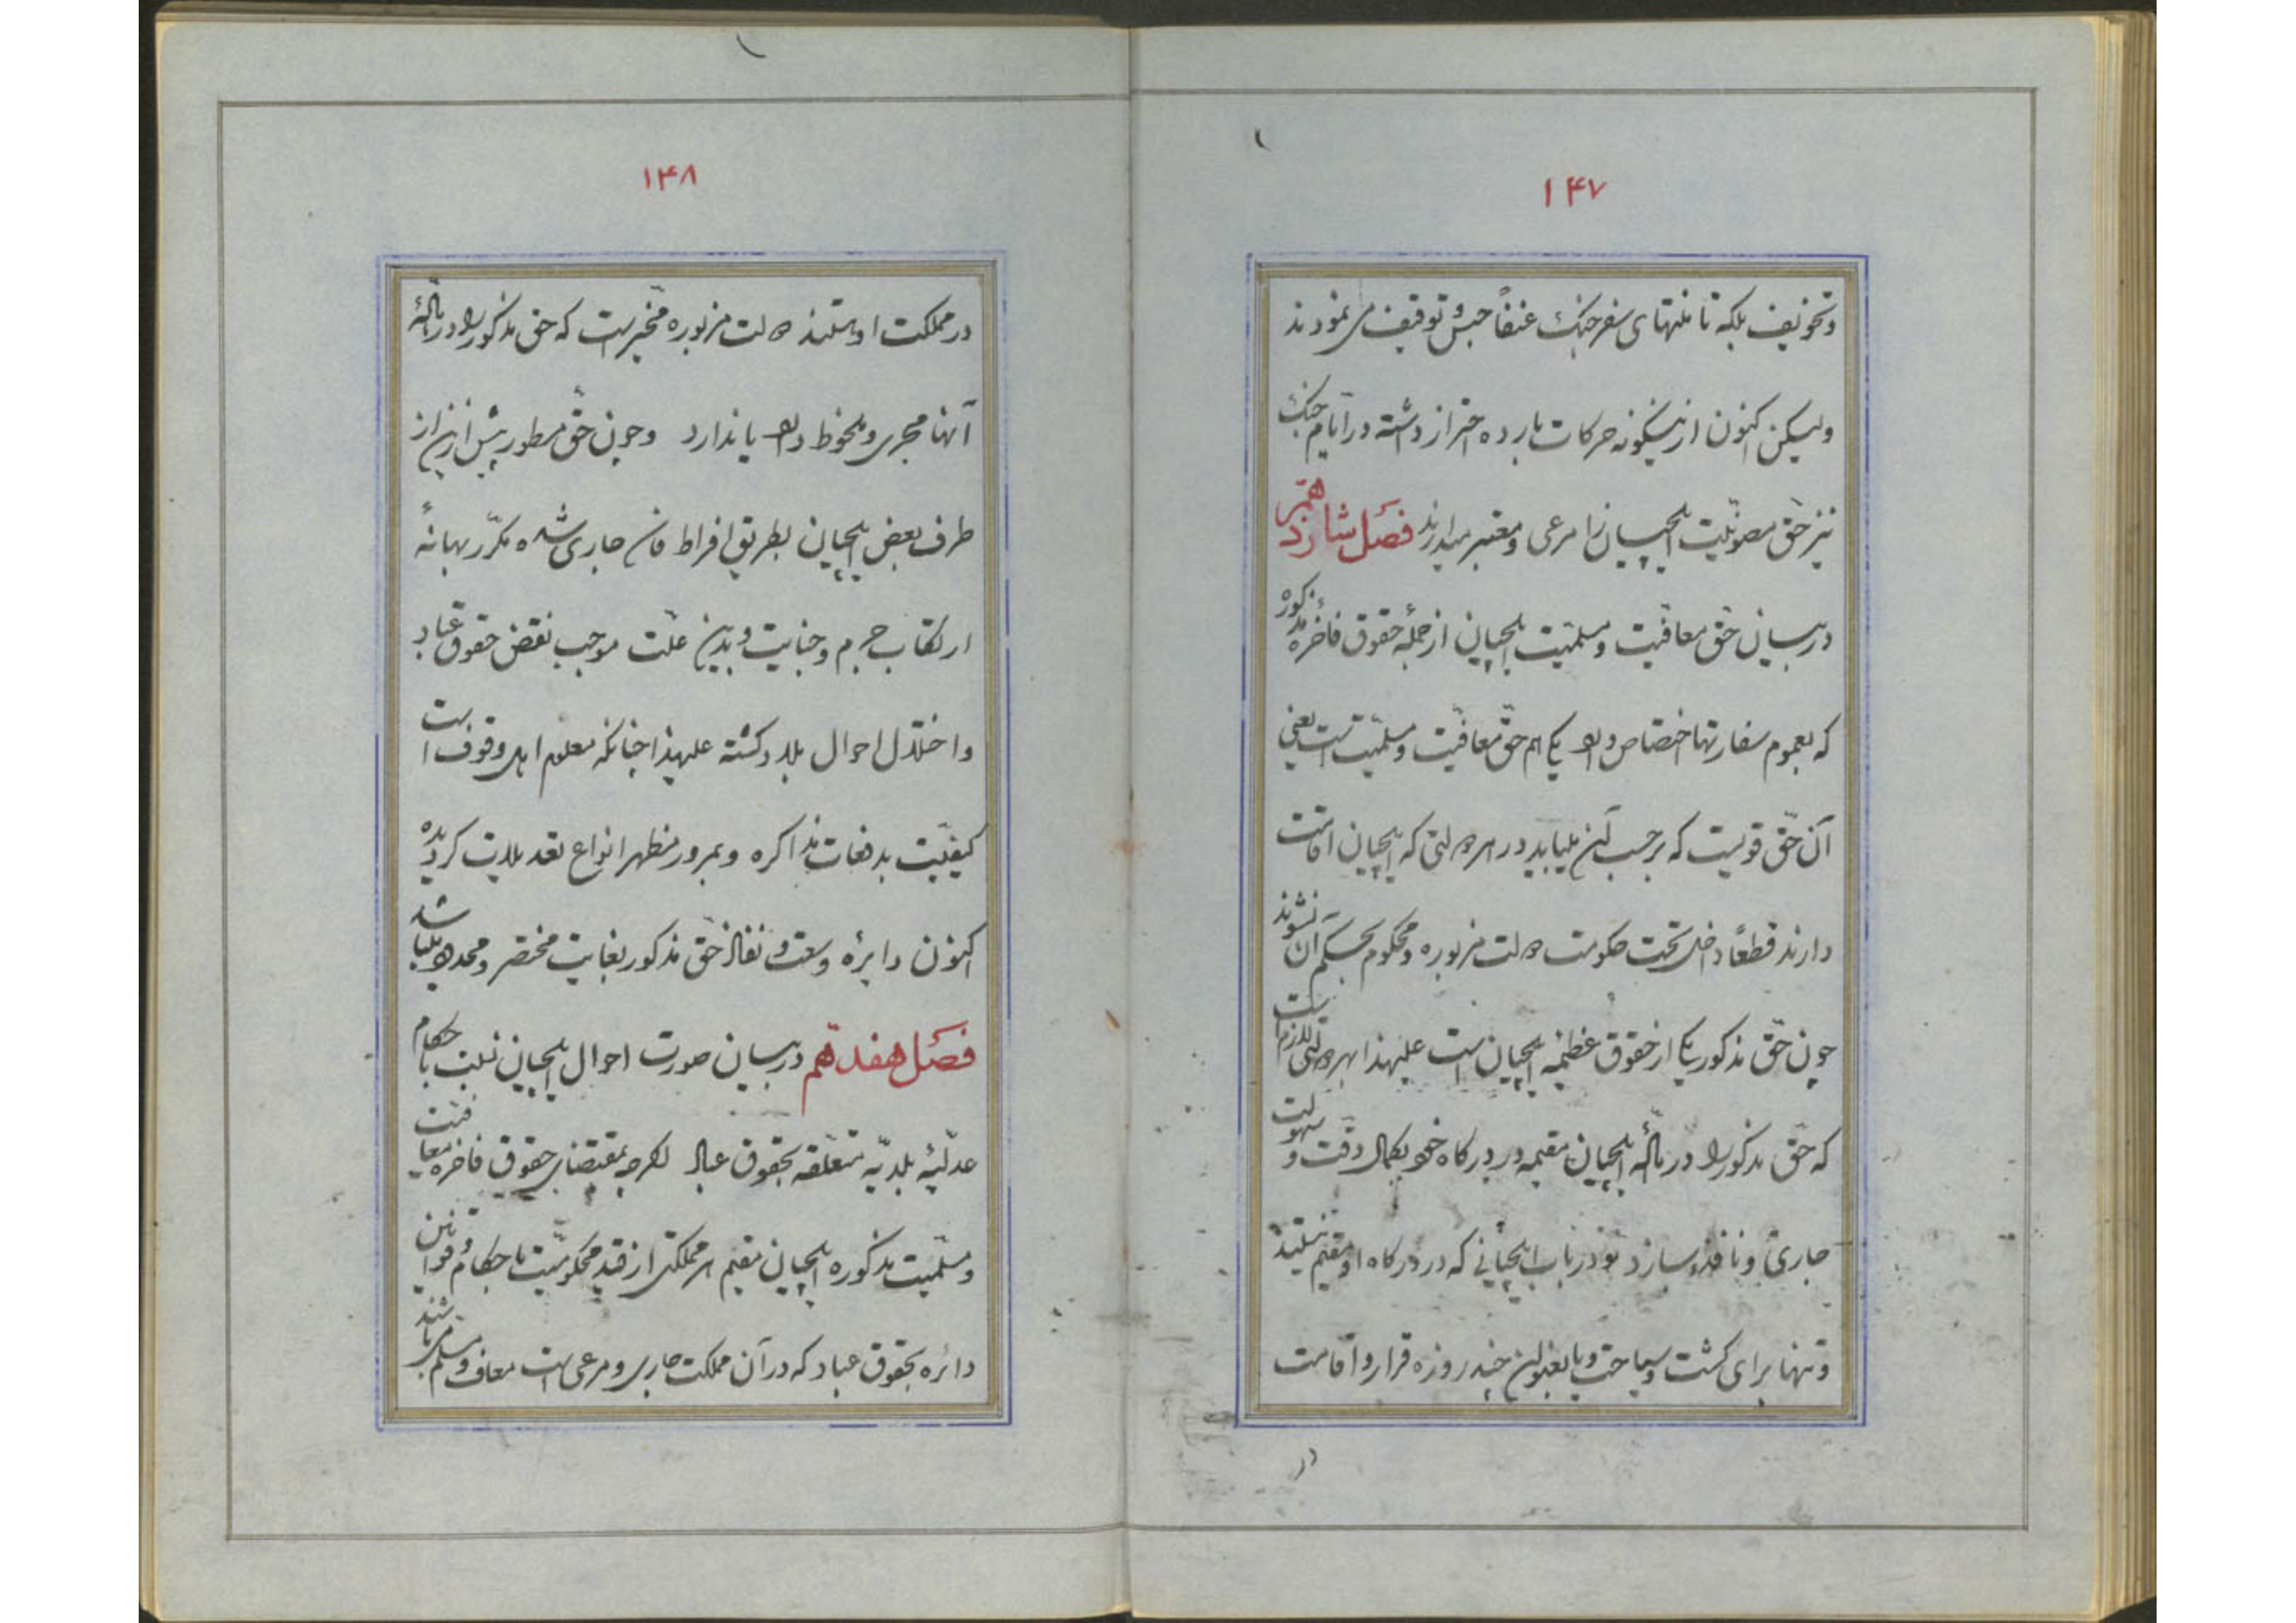 ۱۴۷
وتخویف بلکه تا منتهای سفر جنک عنفاً حبس و توقیف می نمودند
ولیکن اکنون ازینکونه حرکات بارده احتراز داشته در ایام جنک
نیز حق مصونیت ایلچیان را مرعی ومعتبر میدارند فصل شانزدهم
دربیان حق معافیت ومسلمیت ایلچیان ازجملهٔ حقوق فاخرهٔ مذکوره
که بعموم سفارتها اختصاص دارد یکی هم حق معافیت ومسلمیت است یعنی
آن حق قویست که برحسب آن میباید در هر دولتی که ایلچیان اقامت
دارند قطعاً داخل تحت حکومت دولت مزبوره ومحکوم بحکم آن نشوند
چون حق مذکور یکی از حقوق عظیمه ایلچیان است علیهذا بهر دولتی لازم است
که حق مذکور را دربارهٔ ایلچیان مقیمه در درکاه خود بکمال دقت و سهولت
جاری و نافذ سازد و در باب ایلچیانی که در درکاه او مقیم نیستند
وتنها برای کشت وسیاحت ویا بعنوان چند روزه قرار و اقامت
در
۱۴۸
در مملکت او هستند دولت مزبوره مخیر است که حق مذکور را دربارهٔ
آنها مجری و ملحوظ دارد یا ندارد وچون حق مسطور پیش ازین از
طرف بعض ایلچیان بطریق افراط جاری شده مکرر بهانهٔ
ارتکاب جرم وجنایت وبدین علت موجب نقض حقوق عباد
واختلال احوال بلاد کشته علیهذا چنانکه معلوم اهل وقوف است
کیفیت بدفعات مذاکره وبمرور مظهر انواع تعدیلات کردیده
اکنون دایرهٔ وسعت و نفاذ حق مذکور بغایت مختصر و محدود میباشد
فصل هفدهم دربیان صورت احوال ایلچیان نسبت باحکام
عدلیهٔ بلدیه متعلقه بحقوق عباد اکرچه بمقتضای حقوق فاخره معافیت
ومسلمیت مذکوره ایلچیان مقیم هر مملکتی از قید محکومیت باحکام و قوانین
دائره بحقوق عباد که در آن مملکت جاری و مرعی است معاف و مسلم میباشند